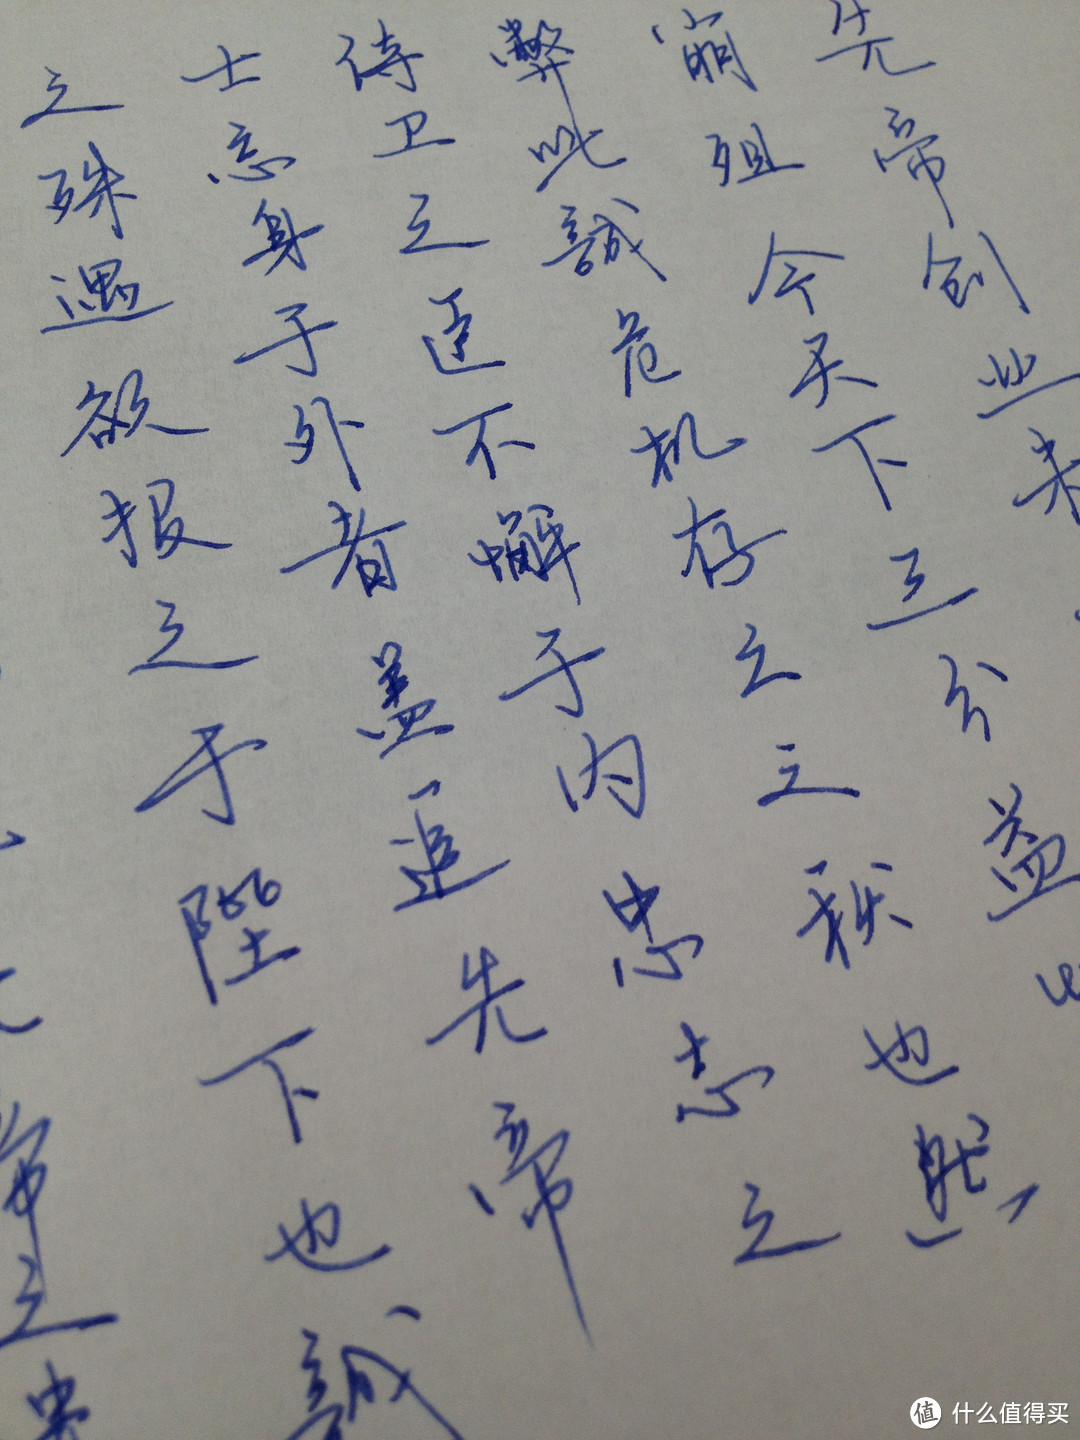 先帝创业未
崩殂今天下三分益
弊此誠危机存亡之秋也然
待卫之臣不懈于内忠志之
士忘身于外者盖追先帝
之殊遇欲报之于陛下也誠
值 什么值得买